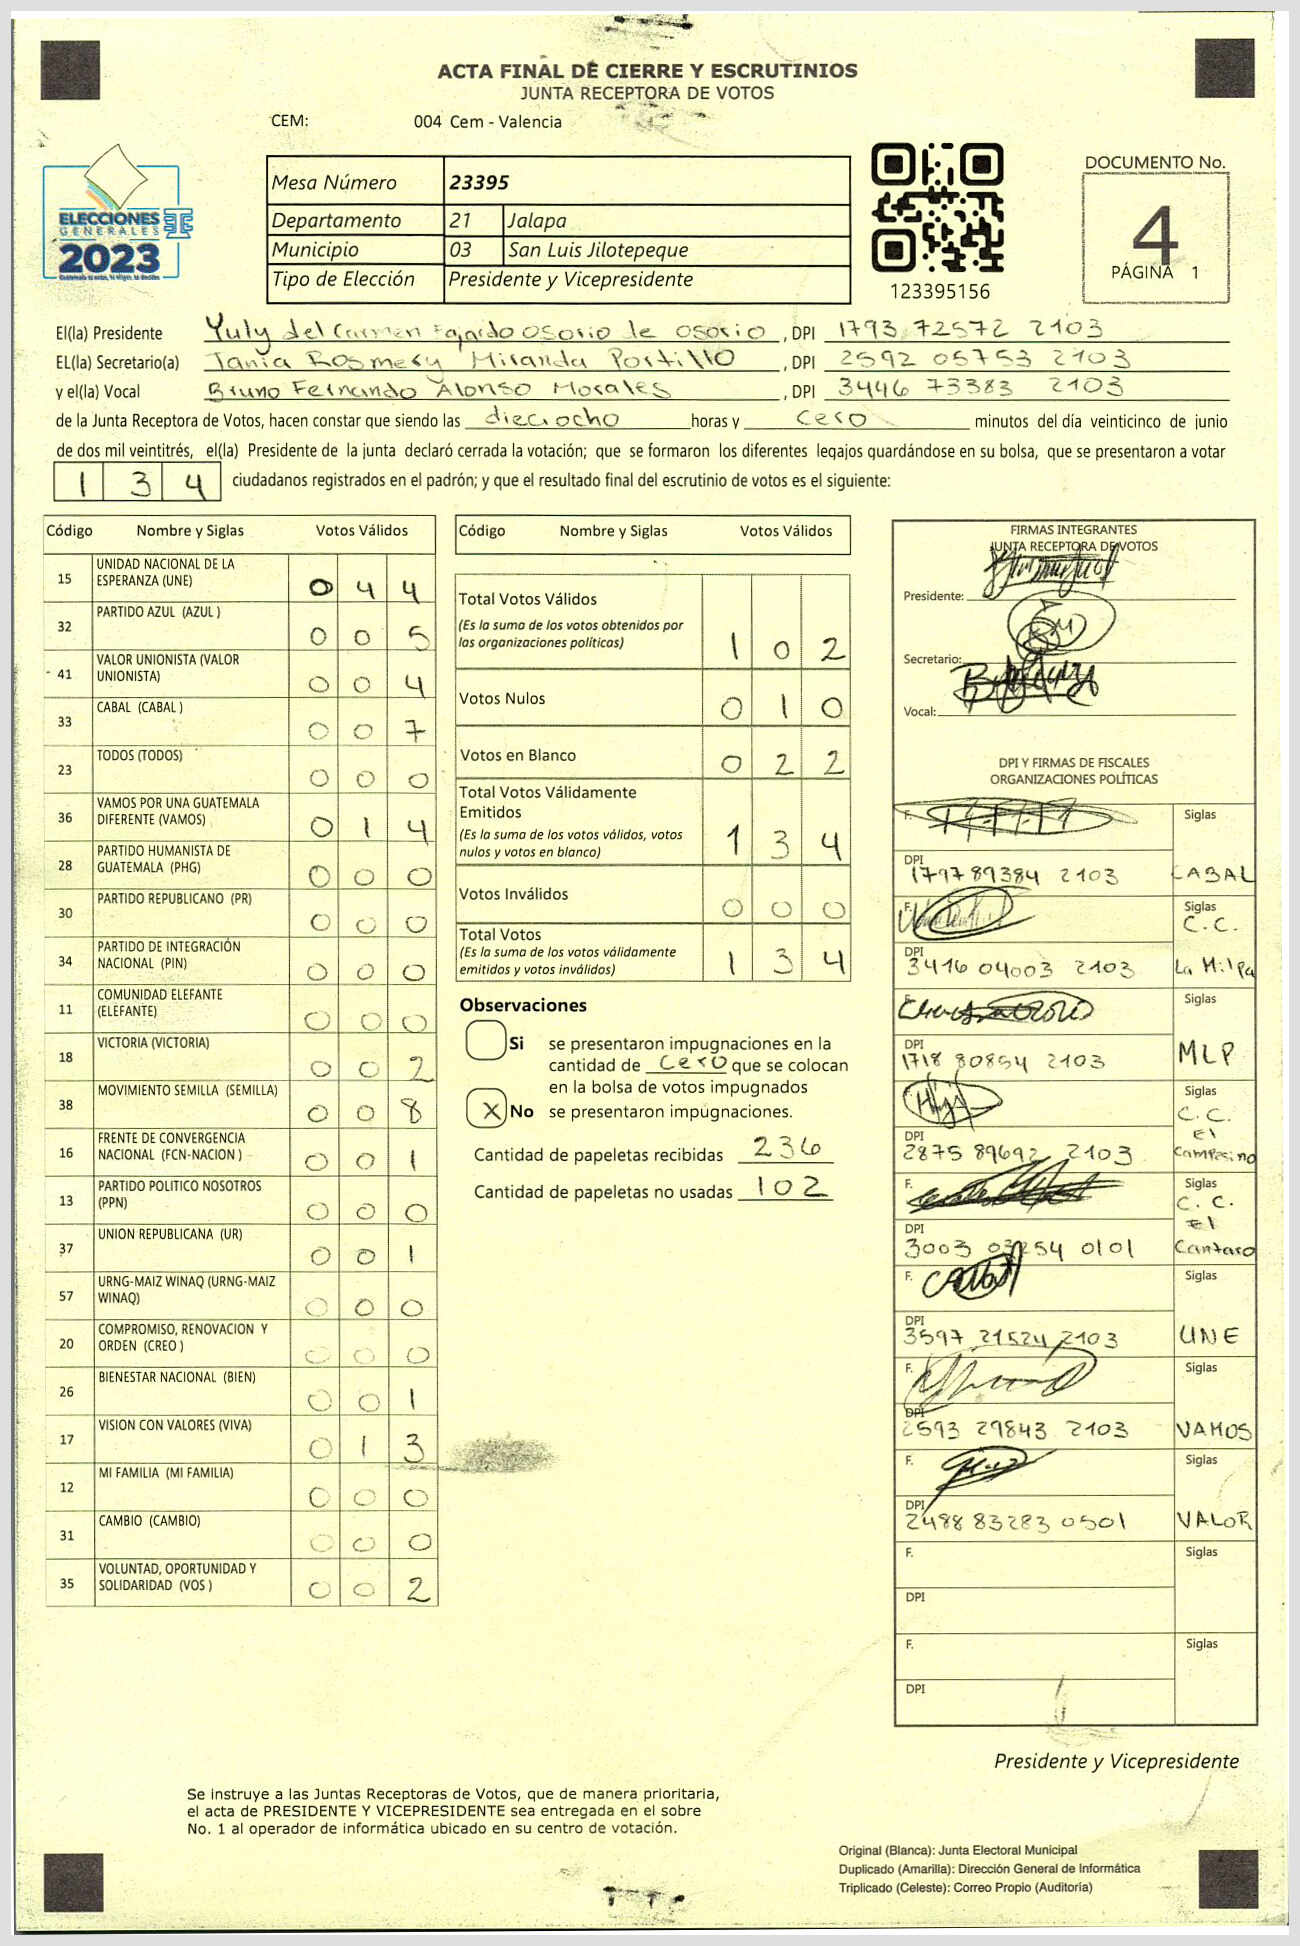 ACTA FINAL DE CIERRE Y ESCRUTINIOS
JUNTA RECEPTORA DE VOTOS
CEM: 004 Cem - Valencia
ELECCIONES
GENERALES
2023
Mesa Número 23395
Departamento 21 Jalapa
Municipio 03 San Luis Jilotepeque
Tipo de Elección Presidente y Vicepresidente
123395156
DOCUMENTO No.
4
PÁGINA 1
El(la) Presidente Yuly del Carmen Fajardo Osorio de Osorio, DPI 1793 72572 2103
EL(la) Secretario(a) Tania Rosmery Miranda Portillo, DPI 2592 05753 2103
y el(la) Vocal Bruno Fernando Alonso Morales, DPI 3446 73383 2103
de la Junta Receptora de Votos, hacen constar que siendo las dieciocho horas y cero minutos del día veinticinco de junio
de dos mil veintitrés, el(la) Presidente de la junta declaró cerrada la votación; que se formaron los diferentes legajos guardándose en su bolsa, que se presentaron a votar
1 3 4 ciudadanos registrados en el padrón; y que el resultado final del escrutinio de votos es el siguiente:
Código Nombre y Siglas Votos Válidos
15 UNIDAD NACIONAL DE LA ESPERANZA (UNE) 0 4 4
32 PARTIDO AZUL (AZUL ) 0 0 5
41 VALOR UNIONISTA (VALOR UNIONISTA) 0 0 4
33 CABAL (CABAL ) 0 0 7
23 TODOS (TODOS) 0 0 0
36 VAMOS POR UNA GUATEMALA DIFERENTE (VAMOS) 0 1 4
28 PARTIDO HUMANISTA DE GUATEMALA (PHG) 0 0 0
30 PARTIDO REPUBLICANO (PR) 0 0 0
34 PARTIDO DE INTEGRACIÓN NACIONAL (PIN) 0 0 0
11 COMUNIDAD ELEFANTE (ELEFANTE) 0 0 0
18 VICTORIA (VICTORIA) 0 0 2
38 MOVIMIENTO SEMILLA (SEMILLA) 0 0 8
16 FRENTE DE CONVERGENCIA NACIONAL (FCN-NACION ) 0 0 1
13 PARTIDO POLITICO NOSOTROS (PPN) 0 0 0
37 UNION REPUBLICANA (UR) 0 0 1
57 URNG-MAIZ WINAQ (URNG-MAIZ WINAQ) 0 0 0
20 COMPROMISO, RENOVACION Y ORDEN (CREO ) 0 0 0
26 BIENESTAR NACIONAL (BIEN) 0 0 1
17 VISION CON VALORES (VIVA) 0 1 3
12 MI FAMILIA (MI FAMILIA) 0 0 0
31 CAMBIO (CAMBIO) 0 0 0
35 VOLUNTAD, OPORTUNIDAD Y SOLIDARIDAD (VOS ) 0 0 2
Código Nombre y Siglas Votos Válidos
Total Votos Válidos
(Es la suma de los votos obtenidos por
las organizaciones políticas) 1 0 2
Votos Nulos 0 1 0
Votos en Blanco 0 2 2
Total Votos Válidamente
Emitidos
(Es la suma de los votos válidos, votos
nulos y votos en blanco) 1 3 4
Votos Inválidos 0 0 0
Total Votos
(Es la suma de los votos válidamente
emitidos y votos inválidos) 1 3 4
Observaciones
Si se presentaron impugnaciones en la
cantidad de cero que se colocan
en la bolsa de votos impugnados
X No se presentaron impugnaciones.
Cantidad de papeletas recibidas 236
Cantidad de papeletas no usadas 102
FIRMAS INTEGRANTES
JUNTA RECEPTORA DE VOTOS
Presidente:
Secretario:
Vocal:
DPI Y FIRMAS DE FISCALES
ORGANIZACIONES POLÍTICAS
F. Siglas
DPI 1797 89384 2103 CABAL
F. Siglas
C.C.
DPI 3416 04003 2103 La Milpa
F. Siglas
DPI 1718 80854 2103 MLP
Siglas
C.C.
El
DPI 2875 89692 2103 Campesino
F. Siglas
C.C.
El
DPI 3003 03254 0101 Cantaro
F. Siglas
DPI 3597 21524 2103 UNE
F. Siglas
DPI 2593 29843 2103 VAMOS
F. Siglas
DPI 2488 83283 0501 VALOR
F. Siglas
DPI
F. Siglas
DPI
Presidente y Vicepresidente
Se instruye a las Juntas Receptoras de Votos, que de manera prioritaria,
el acta de PRESIDENTE Y VICEPRESIDENTE sea entregada en el sobre
No. 1 al operador de informática ubicado en su centro de votación.
Original (Blanca): Junta Electoral Municipal
Duplicado (Amarilla): Dirección General de Informática
Triplicado (Celeste): Correo Propio (Auditoría)